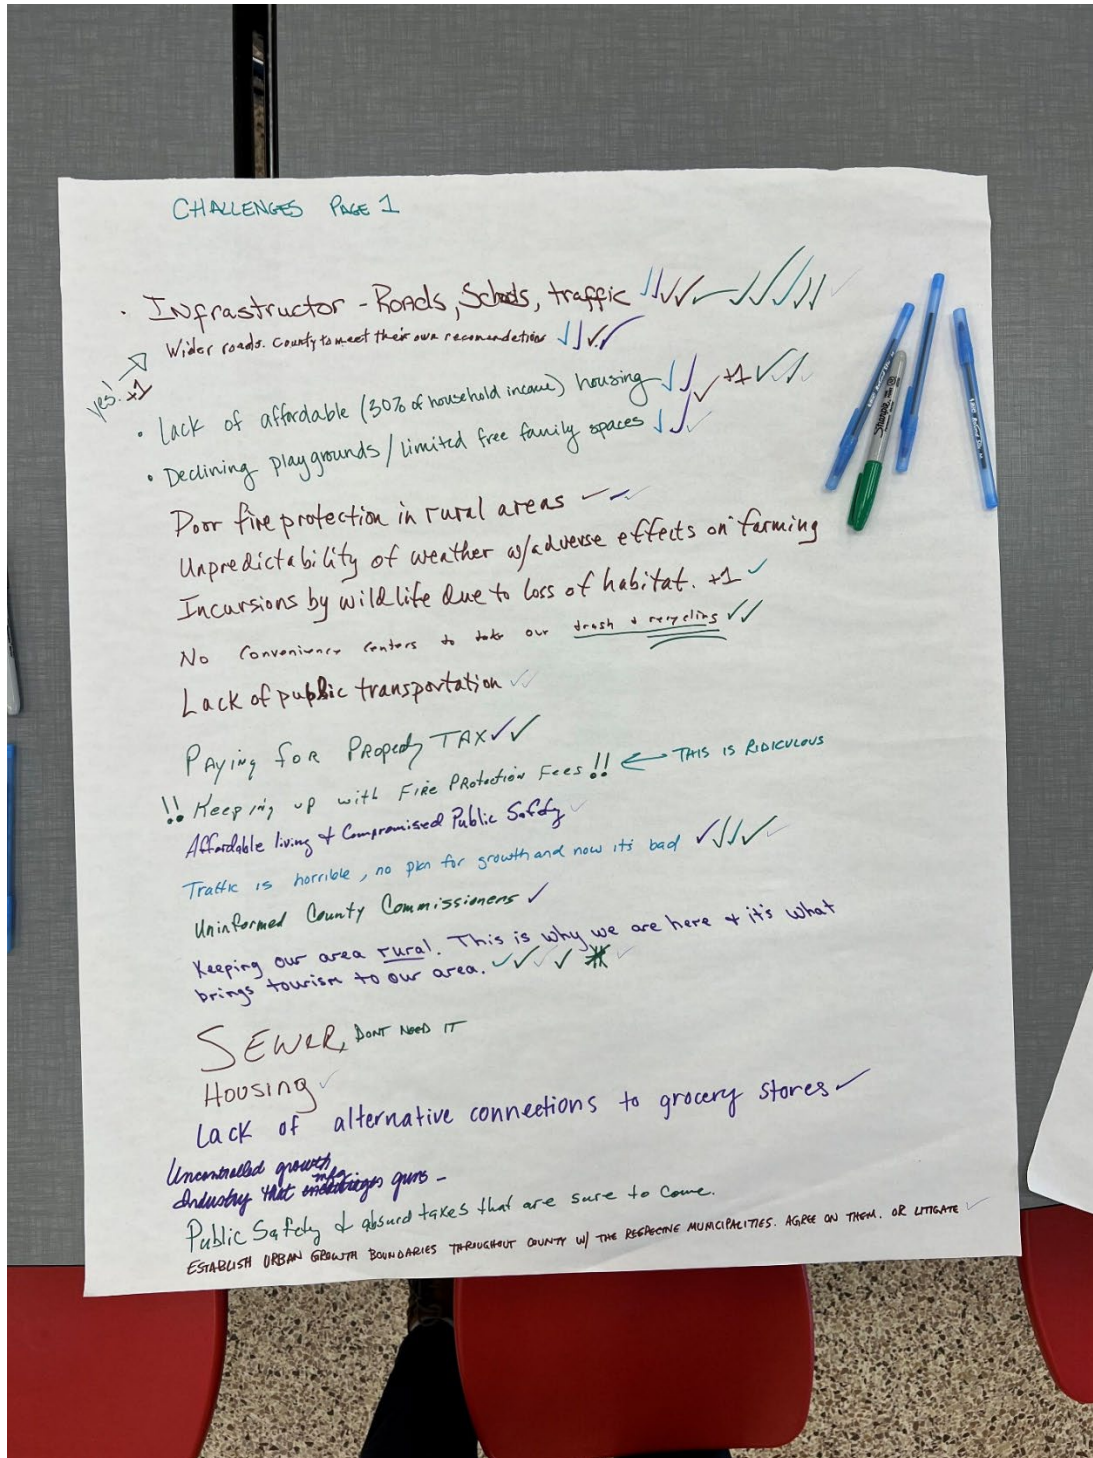 CHALLENGES PAGE 1
· INfrastructor - Roads, Schools, traffic ✓✓✓✓✓✓✓✓✓✓
Wider roads. County to meet their own recomendations ✓✓✓✓
yes! +1
· Lack of affordable (30% of household income) housing ✓✓✓ +1 ✓✓✓
· Declining playgrounds / limited free family spaces ✓✓✓
Poor fire protection in rural areas ✓✓✓
Unpredictability of weather w/adverse effects on farming
Incursions by wildlife due to loss of habitat. +1 ✓
No convenience centers to take our trash + recycling ✓✓
Lack of public transportation ✓✓
Paying for Property TAX ✓✓
!! Keeping up with Fire Protection Fees!! ← THIS IS RIDICULOUS
Affordable living & Compromised Public Safety ✓
Traffic is horrible, no plan for growth and now it's bad ✓✓✓✓✓
Uninformed County Commissioners ✓
Keeping our area rural. This is why we are here + it's what
brings tourism to our area. ✓✓✓✓ ✓
SEWER, DONT NEED IT
Housing ✓
Lack of alternative connections to grocery stores ✓
Uncontrolled growth
Industry that mfg guns -
Public Safety & absurd taxes that are sure to come.
ESTABLISH URBAN GROWTH BOUNDARIES THROUGHOUT COUNTY W/ THE RESPECTIVE MUNICIPALITIES. AGREE ON THEM. OR LITIGATE ✓
Sharpie